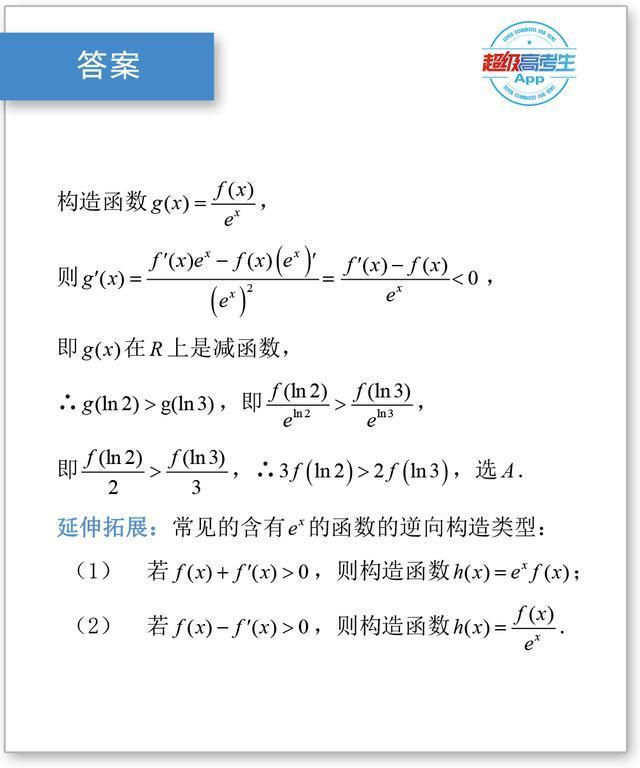 答案
SUPER CANDIDATES FOR GENT
超级高考生
App
SUPER CANDIDATES FOR GENT
构造函数 g(x) = f(x)/e^x，
则 g′(x) = (f′(x)e^x − f(x)(e^x)′)/(e^x)^2 = (f′(x) − f(x))/e^x < 0，
即 g(x) 在 R 上是减函数，
∴ g(ln 2) > g(ln 3)，即 f(ln 2)/e^(ln 2) > f(ln 3)/e^(ln 3)，
即 f(ln 2)/2 > f(ln 3)/3，∴ 3f(ln 2) > 2f(ln 3)，选 A.
延伸拓展：常见的含有 e^x 的函数的逆向构造类型：
（1） 若 f(x) + f′(x) > 0，则构造函数 h(x) = e^x f(x)；
（2） 若 f(x) − f′(x) > 0，则构造函数 h(x) = f(x)/e^x.